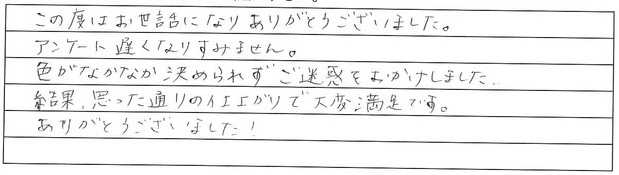 この度はお世話になりありがとうございました。
アンケート遅くなりすみません。
色がなかなか決められずご迷惑をおかけしました..
結果、思った通りの仕上がりで大変満足です。
ありがとうございました!